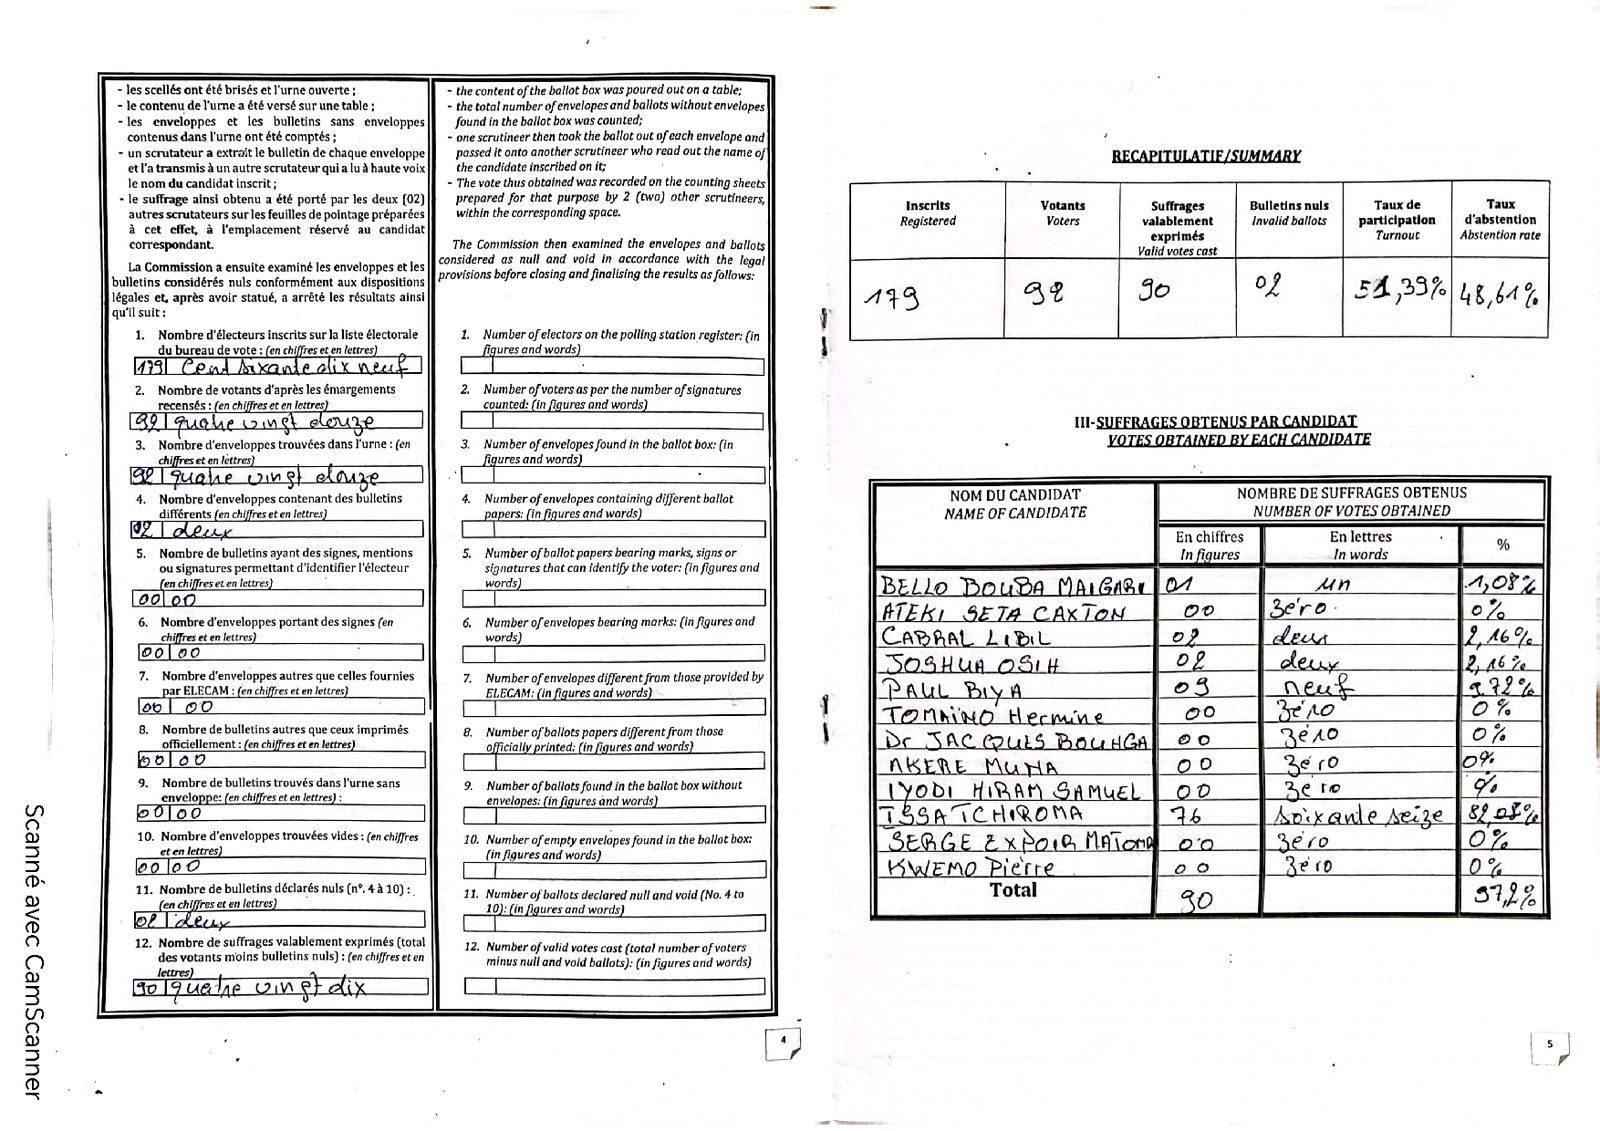 - les scellés ont été brisés et l'urne ouverte ;
- le contenu de l'urne a été versé sur une table ;
- les enveloppes et les bulletins sans enveloppes
contenus dans l'urne ont été comptés ;
- un scrutateur a extrait le bulletin de chaque enveloppe
et l'a transmis à un autre scrutateur qui a lu à haute voix
le nom du candidat inscrit ;
- le suffrage ainsi obtenu a été porté par les deux (02)
autres scrutateurs sur les feuilles de pointage préparées
à cet effet, à l'emplacement réservé au candidat
correspondant.
La Commission a ensuite examiné les enveloppes et les
bulletins considérés nuls conformément aux dispositions
légales et, après avoir statué, a arrêté les résultats ainsi
qu'il suit :
1. Nombre d'électeurs inscrits sur la liste électorale
du bureau de vote : (en chiffres et en lettres)
179 Cent sixante dix neuf
2. Nombre de votants d'après les émargements
recensés : (en chiffres et en lettres)
92 quatre vingt douze
3. Nombre d'enveloppes trouvées dans l'urne : (en
chiffres et en lettres)
92 quatre vingt douze
4. Nombre d'enveloppes contenant des bulletins
différents (en chiffres et en lettres)
02 deux
5. Nombre de bulletins ayant des signes, mentions
ou signatures permettant d'identifier l'électeur
(en chiffres et en lettres)
00 00
6. Nombre d'enveloppes portant des signes (en
chiffres et en lettres)
00 00
7. Nombre d'enveloppes autres que celles fournies
par ELECAM : (en chiffres et en lettres)
00 00
8. Nombre de bulletins autres que ceux imprimés
officiellement : (en chiffres et en lettres)
00 00
9. Nombre de bulletins trouvés dans l'urne sans
enveloppe: (en chiffres et en lettres) :
00 00
10. Nombre d'enveloppes trouvées vides : (en chiffres
et en lettres)
00 00
11. Nombre de bulletins déclarés nuls (n°. 4 à 10) :
(en chiffres et en lettres)
02 deux
12. Nombre de suffrages valablement exprimés (total
des votants moins bulletins nuls) : (en chiffres et en
lettres)
90 quatre vingt dix
- the content of the ballot box was poured out on a table;
- the total number of envelopes and ballots without envelopes
found in the ballot box was counted;
- one scrutineer then took the ballot out of each envelope and
passed it onto another scrutineer who read out the name of
the candidate inscribed on it;
- The vote thus obtained was recorded on the counting sheets
prepared for that purpose by 2 (two) other scrutineers,
within the corresponding space.
The Commission then examined the envelopes and ballots
considered as null and void in accordance with the legal
provisions before closing and finalising the results as follows:
1. Number of electors on the polling station register: (in
figures and words)
2. Number of voters as per the number of signatures
counted: (in figures and words)
3. Number of envelopes found in the ballot box: (in
figures and words)
4. Number of envelopes containing different ballot
papers: (in figures and words)
5. Number of ballot papers bearing marks, signs or
signatures that can identify the voter: (in figures and
words)
6. Number of envelopes bearing marks: (in figures and
words)
7. Number of envelopes different from those provided by
ELECAM: (in figures and words)
8. Number of ballots papers different from those
officially printed: (in figures and words)
9. Number of ballots found in the ballot box without
envelopes: (in figures and words)
10. Number of empty envelopes found in the ballot box:
(in figures and words)
11. Number of ballots declared null and void (No. 4 to
10): (in figures and words)
12. Number of valid votes cast (total number of voters
minus null and void ballots): (in figures and words)
4
Scanné avec CamScanner
RECAPITULATIF/SUMMARY
Inscrits Registered
Votants Voters
Suffrages valablement exprimés Valid votes cast
Bulletins nuls Invalid ballots
Taux de participation Turnout
Taux d'abstention Abstention rate
179 92 90 02 51,39% 48,61%
III-SUFFRAGES OBTENUS PAR CANDIDAT
VOTES OBTAINED BY EACH CANDIDATE
NOM DU CANDIDAT
NAME OF CANDIDATE
NOMBRE DE SUFFRAGES OBTENUS
NUMBER OF VOTES OBTAINED
En chiffres
In figures
En lettres
In words
%
BELLO BOUBA MAIGARI 01 un 1,08%
ATEKI SETA CAXTON 00 zéro 0%
CABRAL LIBIL 02 deux 2,16%
JOSHUA OSIH 02 deux 2,16%
PAUL BIYA 09 neuf 9,72%
TOMAÏNO Hermine 00 zéro 0%
Dr JACQUES BOUHGA 00 zéro 0%
AKERE MUNA 00 zéro 0%
IYODI HIRAM SAMUEL 00 zéro %
ISSA TCHIROMA 76 soixante seize 82,08%
SERGE EXPOIR MATOMA 00 zéro 0%
KWEMO Pierre 00 zéro 0%
Total 90 97,2%
5